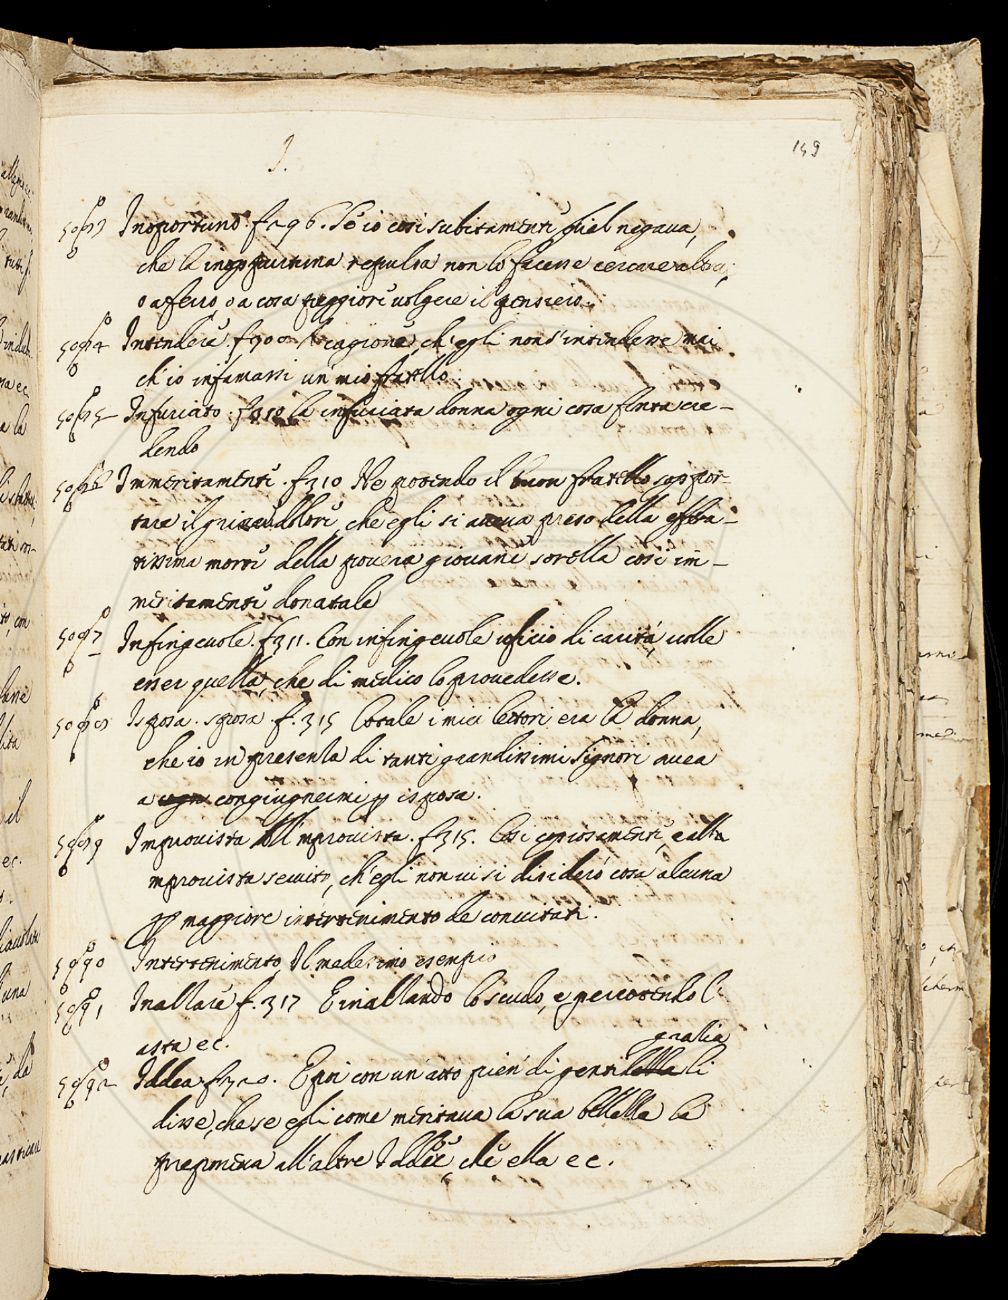 I.
149
Inoportuno. f. 296. Se io così subitamente gliel negaua,
che la inoportuna repulsa non lo facesse cercare altra,
o a ferro o a cosa peggiore uolgere il pensiero.
Intendere. f. 300 cagione, ch'egli non s'intendesse mai
ch'io infamassi un mio fratello.
Infuriato. f. 310 la infuriata donna ogni cosa finta cre-
dendo
Immeritamente. f. 310 Ne potendo il buon fratello soppor-
tare il dolore, che egli si aueua preso della
morte della pouera giouane sorella così im-
meritamente donatale
Infingeuole. f. 311. Con infingeuole uficio di carità, uolle
esser quella, che di medico lo prouedesse.
Isposa. sposa f. 315 Cotale i miei lettori era la donna,
che io in presenza di tanti grandissimi Signori auea
a congiugnermi per isposa.
Improuista All'improuista. f. 315. Così copiosamente, e alla
improuista seruito, ch'egli non ui si disiderò cosa alcuna
per maggiore intertenimento de conuitati.
Intertenimento, Il medesimo esempio
Inalzare f. 317 E inalzando lo scudo, e percotendo l'
asta ec.
Iddea f. 320. E poi con un atto pien di gentilezza gratia li
disse, che se egli come meritaua la sua bellezza la
preponeua all'altre Iddee, che ella ec.